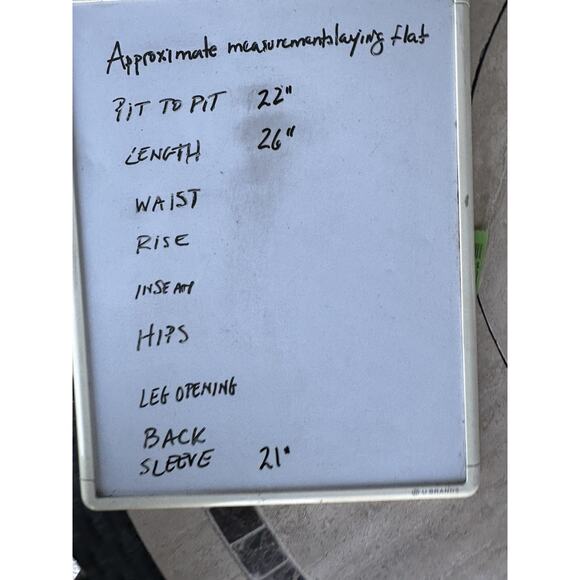 Approximate measurements laying flat
PIT TO PIT 22"
LENGTH 26"
WAIST
RISE
INSEAM
HIPS
LEG OPENING
BACK
SLEEVE 21"
U BRANDS